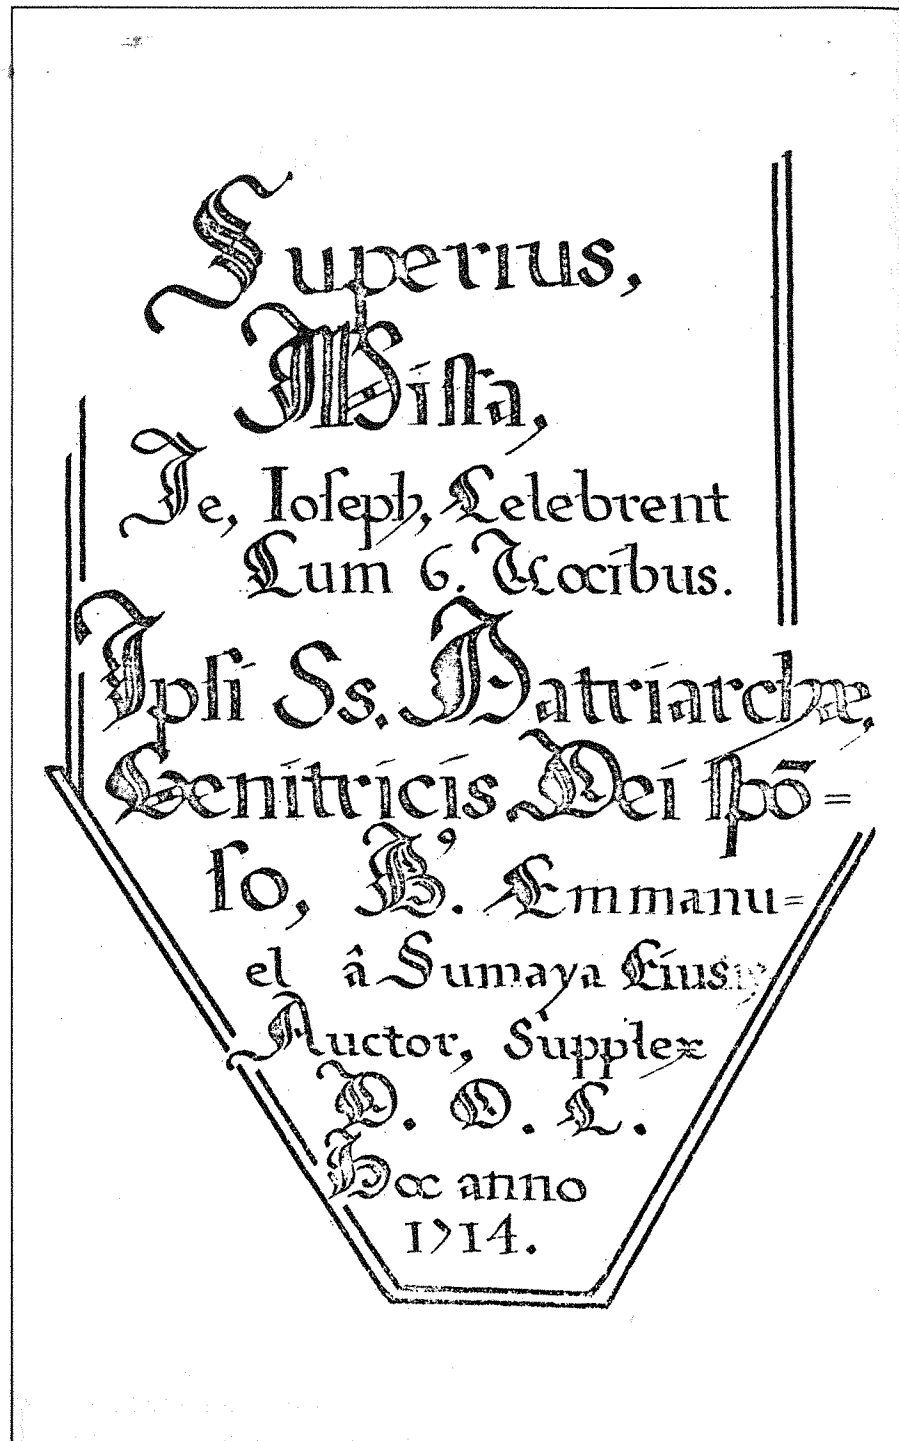 Superius,
Missa,
Te, Ioseph, Celebrent
Cum 6. Vocibus.
Ipsi Ss. Patriarchæ,
Genitricis Dei spõ=
so, B'. Emmanu=
el â Sumaya Eius
Auctor, Supplex
D. O. C.
Hoc anno
1714.